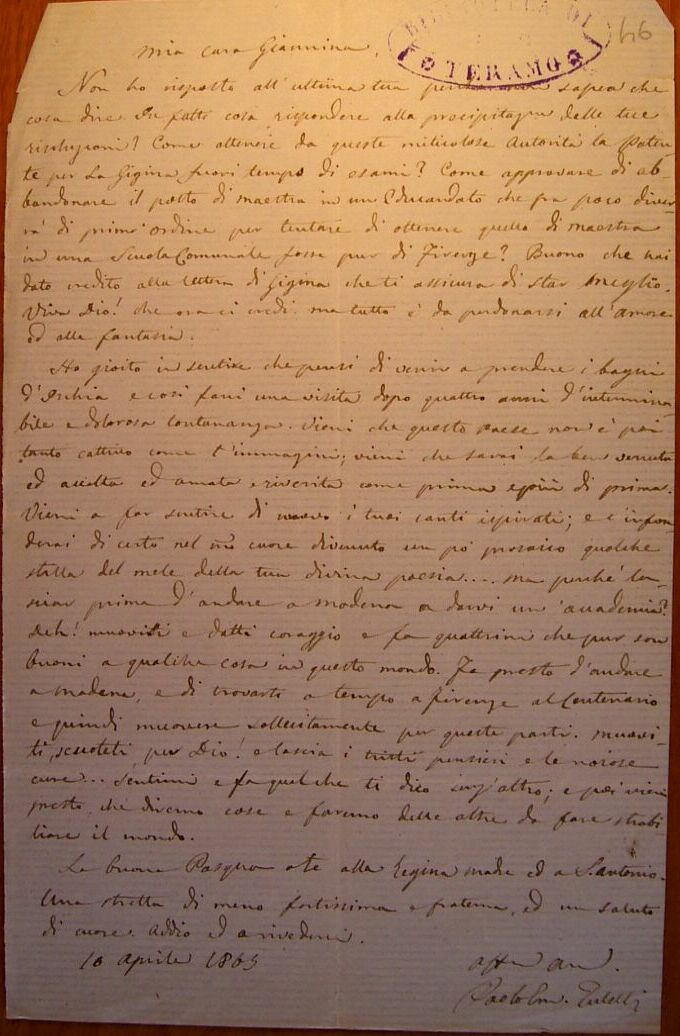 BIBLIOTECA DI
TERAMO
46
Mia cara Giannina,
Non ho risposto all'ultima tua sapea che
cosa dire. In fatti cosa rispondere alla precipitazne delle tue
risoluzioni? Come ottenere da queste meticolose Autorità la Paten-
te per la Gigina fuori tempo di esami? Come approvare di ab-
bandonare il posto di maestra in un Educandato che fra poco diver-
rà di prim'ordine per tentare di ottenere quello di maestra
in una Scuola Comunale fosse pur di Firenze? Buono che hai
dato credito alla lettera di Gigina che ti assicura di star meglio.
Viva Dio! che ora ci credi. ma tutto è da perdonarsi all'amore
ed alla fantasia.
Ho gioito in sentire che pensi di venir a prendere i bagni
d'Ischia e così farci una visita dopo quattro anni d'intermina-
bile e dolorosa lontananza. Vieni che questo paese non è poi
tanto cattivo come t'immagini; vieni che sarai la ben venuta
ed accolta ed amata e riverita come prima e più di prima.
Vieni a far sentire di nuovo i tuoi canti ispirati; e c'infon-
derai di certo nel mo cuore divenuto un pò prosaico qualche
stilla del mele della tua divina poesia.... ma perché la-
sciar prima d'andare a Modena a darvi un'accademia?
Deh! muoviti e datti coraggio e fa quattrini che pur son
buoni a qualche cosa in questo mondo. Fa presto d'andare
a Modena, e di trovarti a tempo a Firenze al Centenario
e quindi muovere sollecitamente per queste parti. muovi-
ti, scuoteti, per Dio! e lascia i tristi pensieri e le noiose
cure... Sentimi e fa quel che ti dico senz'altro; e poi vieni
presto, che diremo cose e faremo delle altre da fare strabi
liare il mondo.
La buona Pasqua a te alla Regina madre ed a S. Antonio.
Una stretta di mano fortissima e fraterna, ed un saluto
di cuore. Addio ed a rivederci.
10 aprile 1865